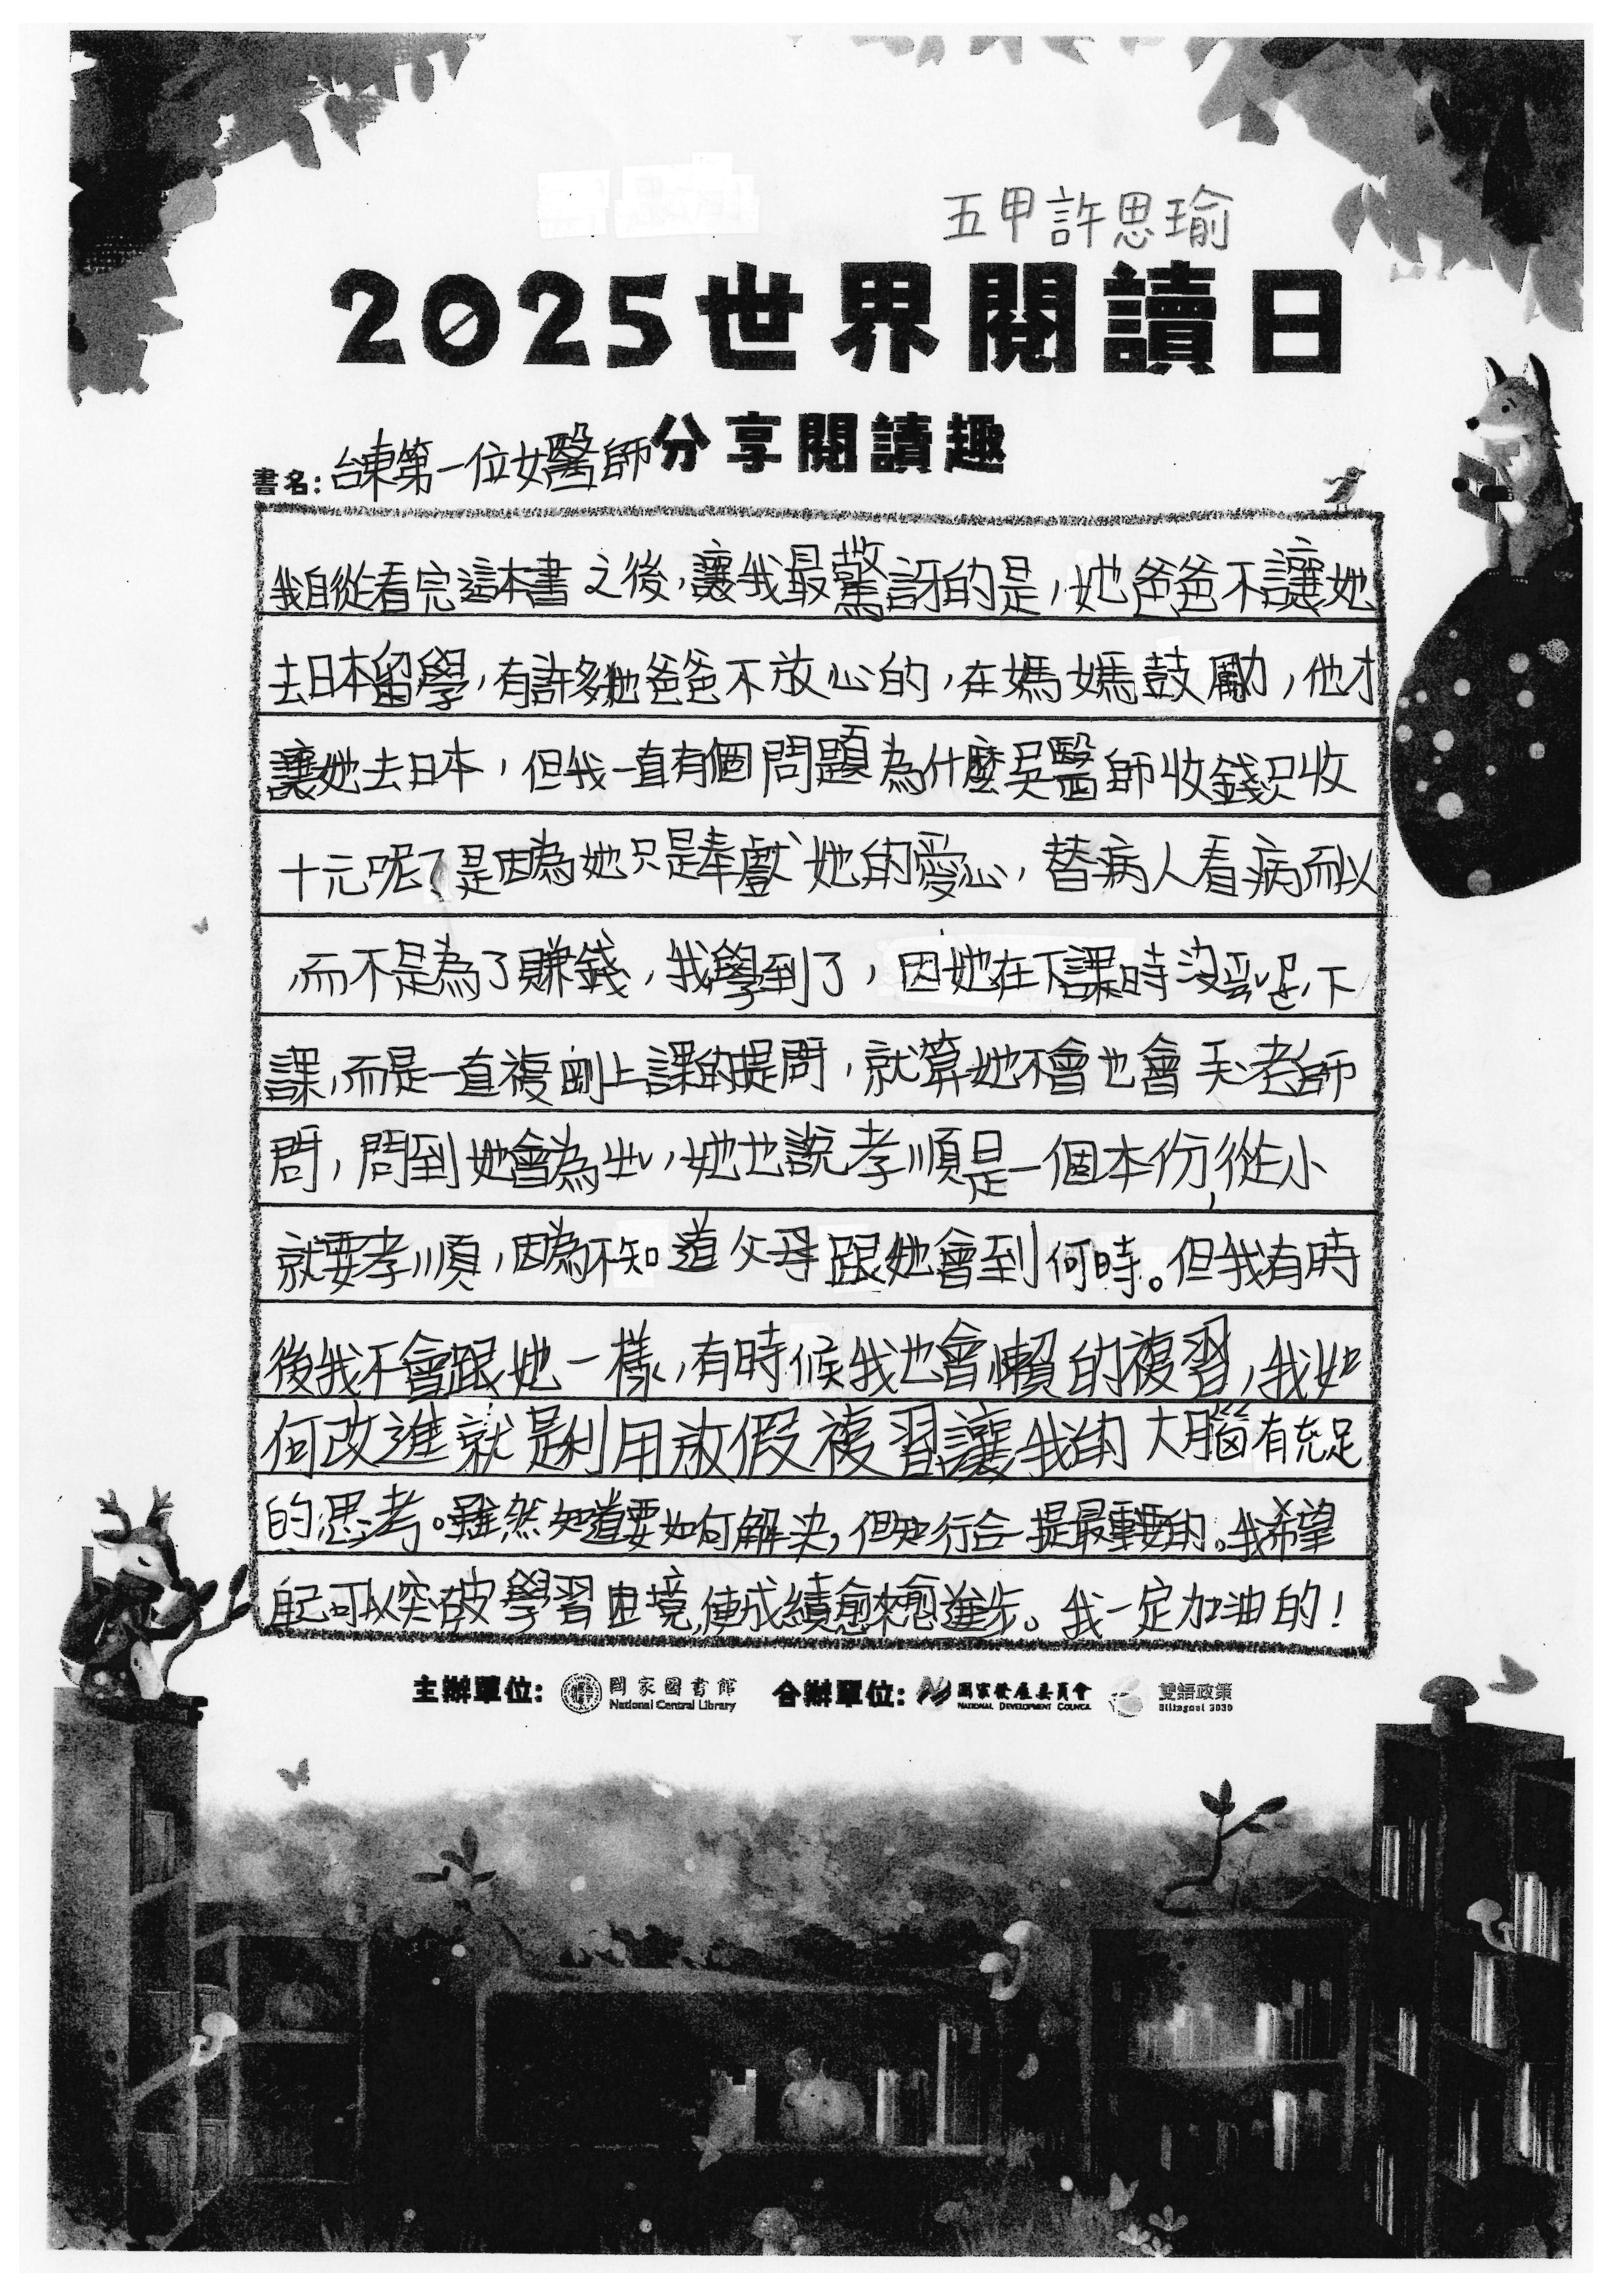 五甲許思瑜
2025世界閱讀日
分享閱讀趣
書名:台東第一位女醫師
我自從看完這本書之後,讓我最驚訝的是,她爸爸不讓她
去日本留學,有許多她爸爸不放心的,在媽媽鼓勵,他才
讓她去日本,但我一直有個問題為什麼吳醫師收錢只收
十元呢?是因為她只是奉獻她的愛心,替病人看病而以
,而不是為了賺錢,我學到了,因她在下課時沒、下
課,而是一直複上課的提問,就算她不會也會 老師
問,問到她會為止,她也說孝順是一個本份,從小
就要孝順,因為不知道父母跟她會到何時。但我有時
後我不會跟她一樣,有時候我也會懶的複習,我如
何改進就是利用放假複習讓我的大腦有充足
的思考。雖然知道要如何解決,但知行合一提最重要的。我希望
自己可以突破學習困境,使成績愈來愈進步。我一定加油的!
主辦單位: 國家圖書館 National Central Library 合辦單位: 國家發展委員會 NATIONAL DEVELOPMENT COUNCIL 雙語政策 Bilingual 2030